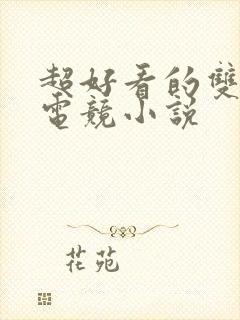 超好看的雙
電競小說
花苑